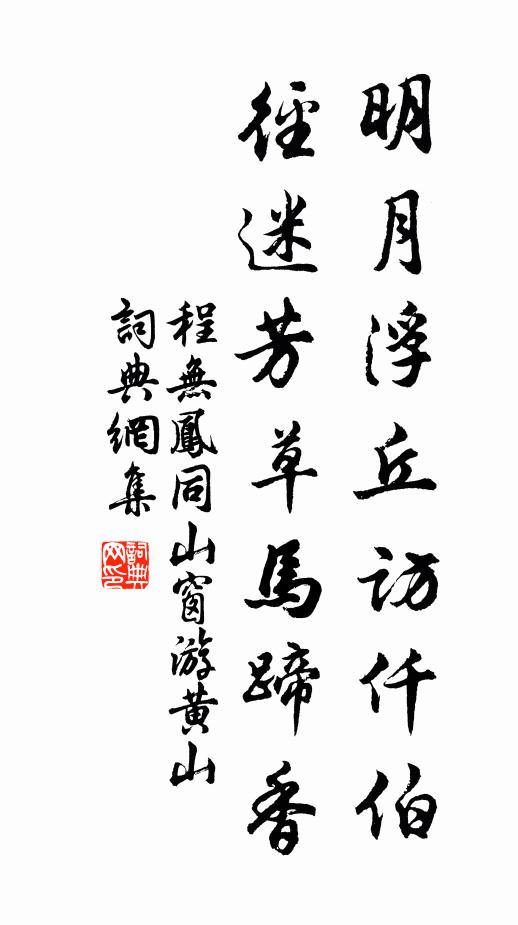 明月浮丘訪仟伯
徑迷芳草馬蹄香
程無鳳同山窗游黃山
詞典網集
詞典网印